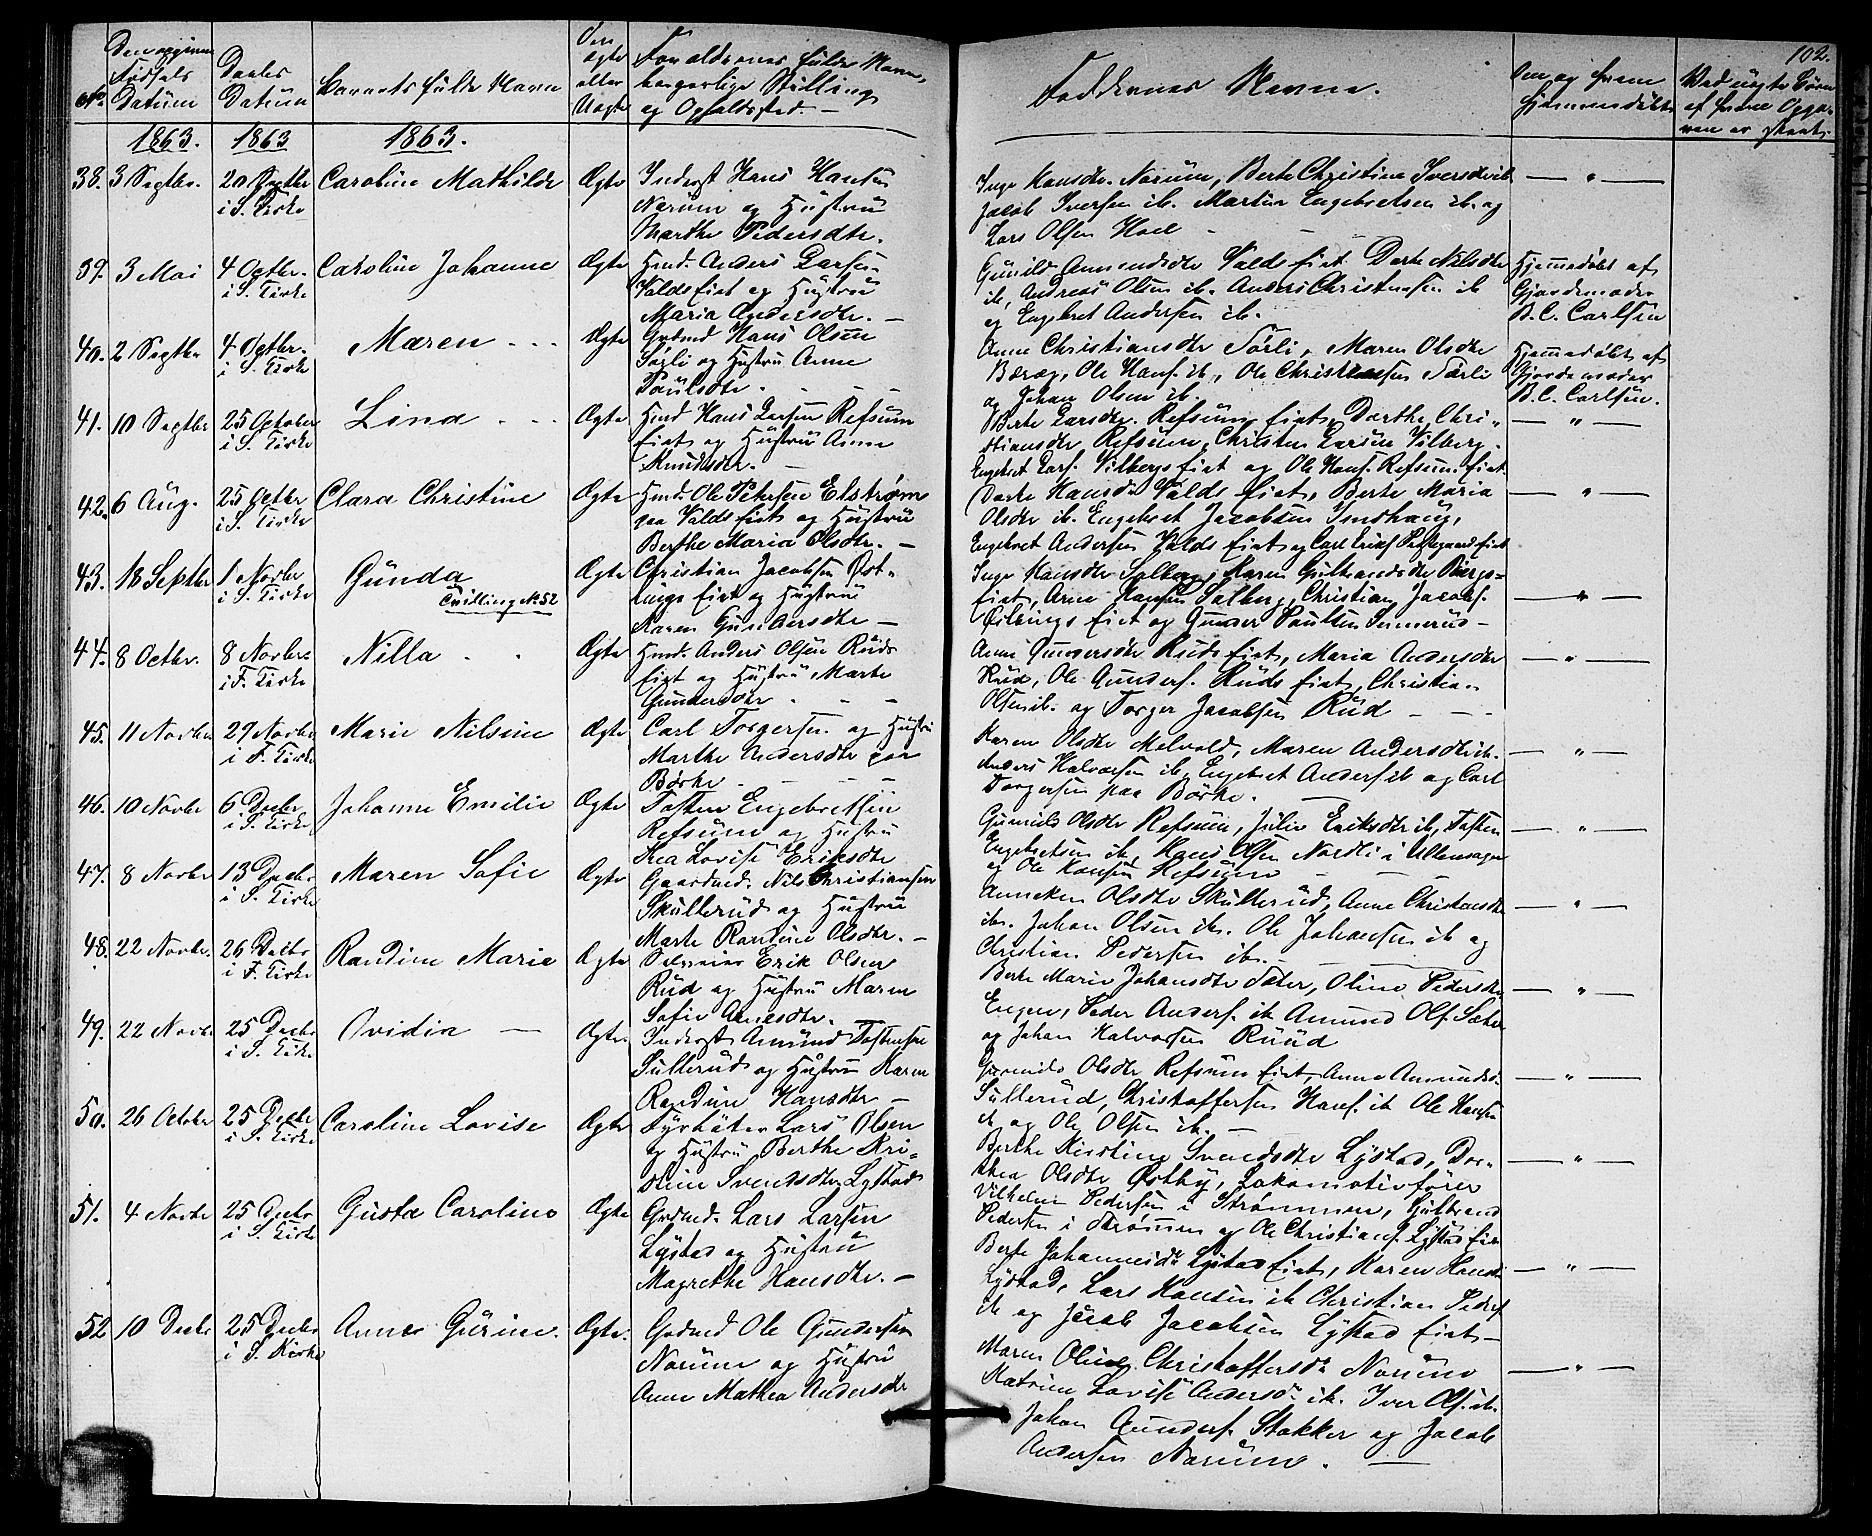 102.
No.
Den opgivne Fødsels Datum
Daabs Datum
Barnets fulde Navn
Om ægte eller uægte
Forældrenes fulde Navn, borgerlige Stilling og Opholdssted. —
Faddernes Navne.
Om og hvem hjemmedøbt
Ved uægte Børn af hvem Opgaven er skeet.
1863. 1863 1863.
38. 3 Septbr. 20 Septbr i S. Kirke Caroline Mathilde Ægte
Inderst Hans Hansen
Narum og Hustru
Marthe Pedersdtr.
Inge Hansdtr. Narum, Berte Christine Iversdtr ib
Jacob Iversen ib. Martin Engebretsen ib. og
Lars Olsen Hoel
— " —
39. 3 Mai 4 Octbr. i S. Kirke Caroline Johanne Ægte
Hmd. Anders Larsen
Valds Eiet og Hustru
Maria Andersdtr. —
Gunild Amundsdtr Valds Eiet Dorte Nilsdtr
ib, Andreas Olsen ib. Anders Christensen ib
og Engebret Andersen ib.
Hjemmedøbt af
Gjordemoder
B. C. Carlsen
40. 2 Septbr 4 Octbr. i S. Kirke Maren Ægte
Grdmd Hans Olsen
Tørli og Hustru Anne
Paulsdtr
Anne Christiansdtr Tørli, Maren Olsdtr
Ole Hans. ib, Ole Christensen Tærli
og Johan Olsen ib.
Hjemmedøbt af
Gjordemoder
B. C. Carlsen.
41. 10 Septbr 25 October i S. Kirke Lina Ægte
Hmd Hans Larsen Refsum
Eiet og Hustru Anne
Knudsdtr. —
Berte Larsdtr. Refsum Eiet, Dorthe Chri-
stiansdtr Refsum, Christen Larsen Vilberg.
Engebret Lars. Vilbergs Eiet og Ole Hans. Refsum Eiet
— " —
42. 6 Aug. 25 Octbr i S. Kirke Clara Christine Ægte
Hmd. Ole Petersen Elstrøm
paa Valds Eiet og Hustru
Berthe Maria Olsdtr. —
Dorte Hansdtr Valds Eiet, Berte Maria
Olsdtr ib. Engebret Jacobsen
Engebret Andersen Valds Eiet og Carl Eriks.
— " —
43. 18 Septbr 1 Novbr i S. Kirke Gunda Tvilling No 52 Ægte
Christian Jacobsen
Eiet og Hustru
Karen Gundersdtr —
Inge Hansdtr Solberg, Maren Gulbrandsdtr
Eiet, Arne Hansen Solberg, Christian Jacobs.
Eiet og Gunder Paulsen
— " —
44. 8 Octbr. 8 Novbre i F. Kirke Nilla Ægte
Hmd. Anders Olsen Ruds
Eiet og Hustru Marte
Gundersdtr
Anne Gundersdtr Ruds Eiet, Maria Andersdtr
Rud, Ole Gunders. Ruds Eiet, Christian
Olsen ib. og Torger Jacobsen Rud
— " —
45. 11 Novbr 29 Novbr i F. Kirke Marie Nilsine Ægte
Carl Torgersen og Hustru
Marthe Andersdtr paa
Børke —
Karen Olsdtr Melvold, Maren Andersdtr ib.
Anders Halvorsen ib, Engebret Anders. ib og Carl
Torgersen paa Børke.
— " —
46. 10 Novbr 6 Decbr i S. Kirke Johanne Emilie Ægte
Tosten Engebretsen
Refsum og Hustru
Thea Lovise Eriksdtr
Gunnild Olsdtr Refsum, Julie Eriksdtr ib, Tosten
Engebretsen ib, Hans Olsen Nordli i Ullensager
og Ole Hansen Refsum
— " —
47. 8 Novbr 13 Decbr i S. Kirke Maren Sofie Ægte
Gaardmd. Nils Christiansen
Skullerud og Hustru
Marte Randine Olsdtr. —
Anneken Olsdtr Skullerud, Anne Christensdtr
ib. Johan Olsen ib. Ole Johansen ib og
Christian Pedersen ib.
— " —
48. 22 Novbr. 26 Decbr i F. Kirke Randine Marie Ægte
Selveier Erik Olsen
Rud og Hustru Maren
Sofie
Berte Marie Johansdtr Sæter, Oline Pedersdtr
Engen, Peder Anders. ib Amund Ols. Sæter
og Johan Halvorsen Ruud
— " —
49. 22 Novbr 25 Decbr i S. Kirke Ovidia — Ægte
Inderst Amund Tostensen
Sullerud og Hustru Karen
Randine Hansdtr —
Gunnild Olsdtr Refsum Eiet, Anne Amundsd.
Sullerud, Christoffersen Hans. ib Ole Hansen
ib og Ole Olsen ib. —
— " —
50. 26 October 25 Decbr i S. Kirke Caroline Lovise Ægte
Fyrbøter Lars Olsen
og Hustru Berthe Kri-
stine Svendsdtr Lystad
Berthe Kirstine Svendsdtr Lystad, Dor-
thea Olsdtr Østby, Lokomotivfører
Vilhelm Pedersen i Strømmen, Gulbrand
Pedersen i Strømmen og Ole Christians. Lystad Eie
— " —
51. 4 Novbr 25 Decbr i S. Kirke Gusta Caroline Ægte
Grdmd. Lars Larsen
Lystad og Hustru
Magrethe Hansdtr. —
Berte Johannesdtr Lystad Eiet, Karen Hansdtr
Lystad, Lars Hansen ib Christian Peders.
ib og Jacob Jacobsen Lystad Eiet —
— " —
52 10 Decbr 25 Decbr i S. Kirke Anne Gurine. Ægte.
Grdmd Ole Gundersen
Narum og Hustru
Anne Mathea Andersdtr
Maren Oline Christoffersdtr Narum
Katrine Lovise Andersdtr ib. Iver Ols. ib.
Johan Gunders. Stakker og Jacob
Andersen Narum. —
— " —